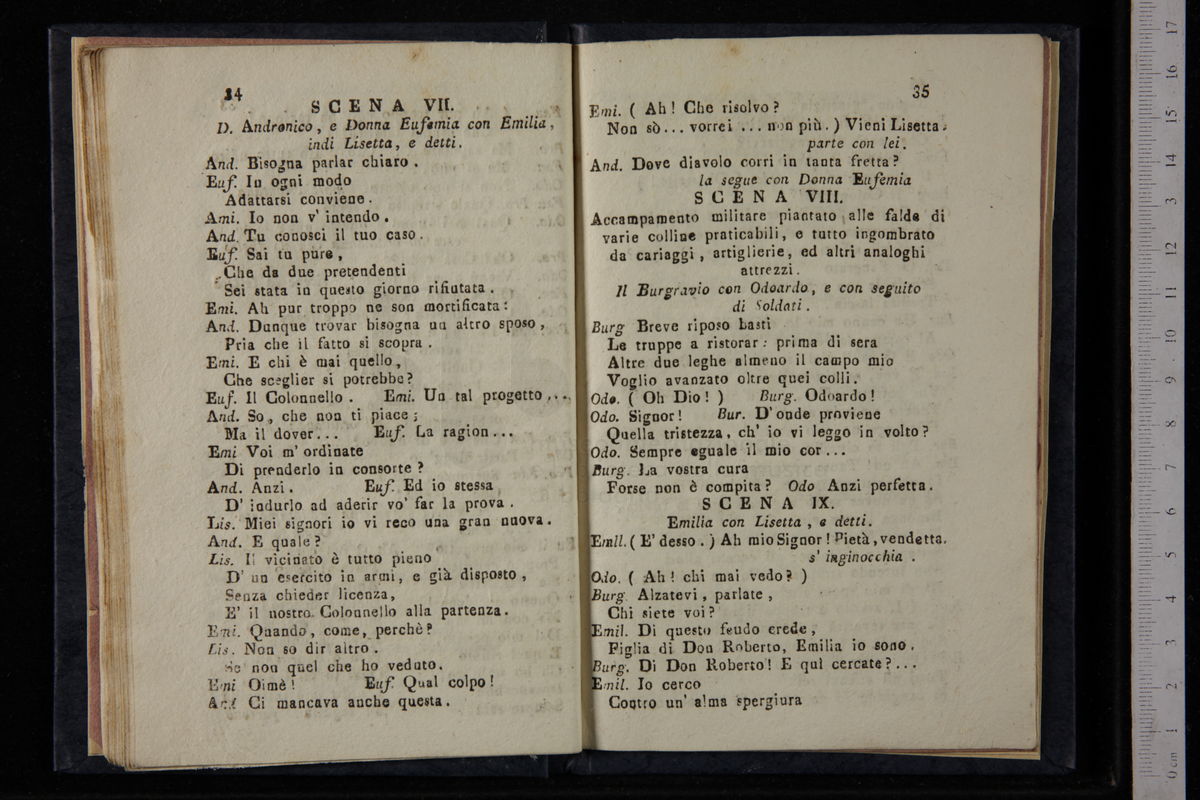 34
SCENA VII.
D. Andronico, e Donna Eufemia con Emilia,
indi Lisetta, e detti.
And. Bisogna parlar chiaro.
Euf. In ogni modo
Adattarsi conviene.
Ami. Io non v' intendo.
And. Tu conosci il tuo caso.
Euf. Sai tu pure,
Che da due pretendenti
Sei stata in questo giorno rifiutata.
Emi. Ah pur troppo ne son mortificata:
And. Dunque trovar bisogna un altro sposo,
Pria che il fatto si scopra.
Emi. E chi è mai quello,
Che sceglier si potrebbe?
Euf. Il Colonnello. Emi. Un tal progetto,...
And. So, che non ti piace;
Ma il dover... Euf. La ragion...
Emi Voi m' ordinate
Di prenderlo in consorte?
And. Anzi. Euf. Ed io stessa
D' indurlo ad aderir vo' far la prova.
Lis. Miei signori io vi reco una gran nuova.
And. E quale?
Lis. Il vicinato è tutto pieno
D' un esercito in armi, e già disposto,
Senza chieder licenza,
E' il nostro Colonnello alla partenza.
Emi. Quando, come, perchè?
Lis. Non so dir altro.
Se non quel che ho veduto.
Emi Oimè! Euf. Qual colpo!
And Ci mancava anche questa.
35
Emi. ( Ah! Che risolvo?
Non sò... vorrei ... non più. ) Vieni Lisetta.
parte con lei.
And. Dove diavolo corri in tanta fretta?
la segue con Donna Eufemia
SCENA VIII.
Accampamento militare piantato alle falde di
varie colline praticabili, e tutto ingombrato
da cariaggi, artiglierie, ed altri analoghi
attrezzi.
Il Burgravio con Odoardo, e con seguito
di Soldati.
Burg Breve riposo basti
Le truppe a ristorar: prima di sera
Altre due leghe almeno il campo mio
Voglio avanzato oltre quei colli.
Odo. ( Oh Dio! ) Burg. Odoardo!
Odo. Signor! Bur. D' onde proviene
Quella tristezza, ch' io vi leggo in volto?
Odo. Sempre eguale il mio cor...
Burg. La vostra cura
Forse non è compita? Odo Anzi perfetta.
SCENA IX.
Emilia con Lisetta, e detti.
Emil. ( E' desso. ) Ah mio Signor! Pietà, vendetta.
s' inginocchia.
Odo. ( Ah! chi mai vedo? )
Burg. Alzatevi, parlate,
Chi siete voi?
Emil. Di questo feudo erede,
Figlia di Don Roberto, Emilia io sono.
Burg. Di Don Roberto! E quì cercate?...
Emil. Io cerco
Contro un' alma spergiura
0 cm 1 2 3 4 5 6 7 8 9 10 11 12 13 14 15 16 17